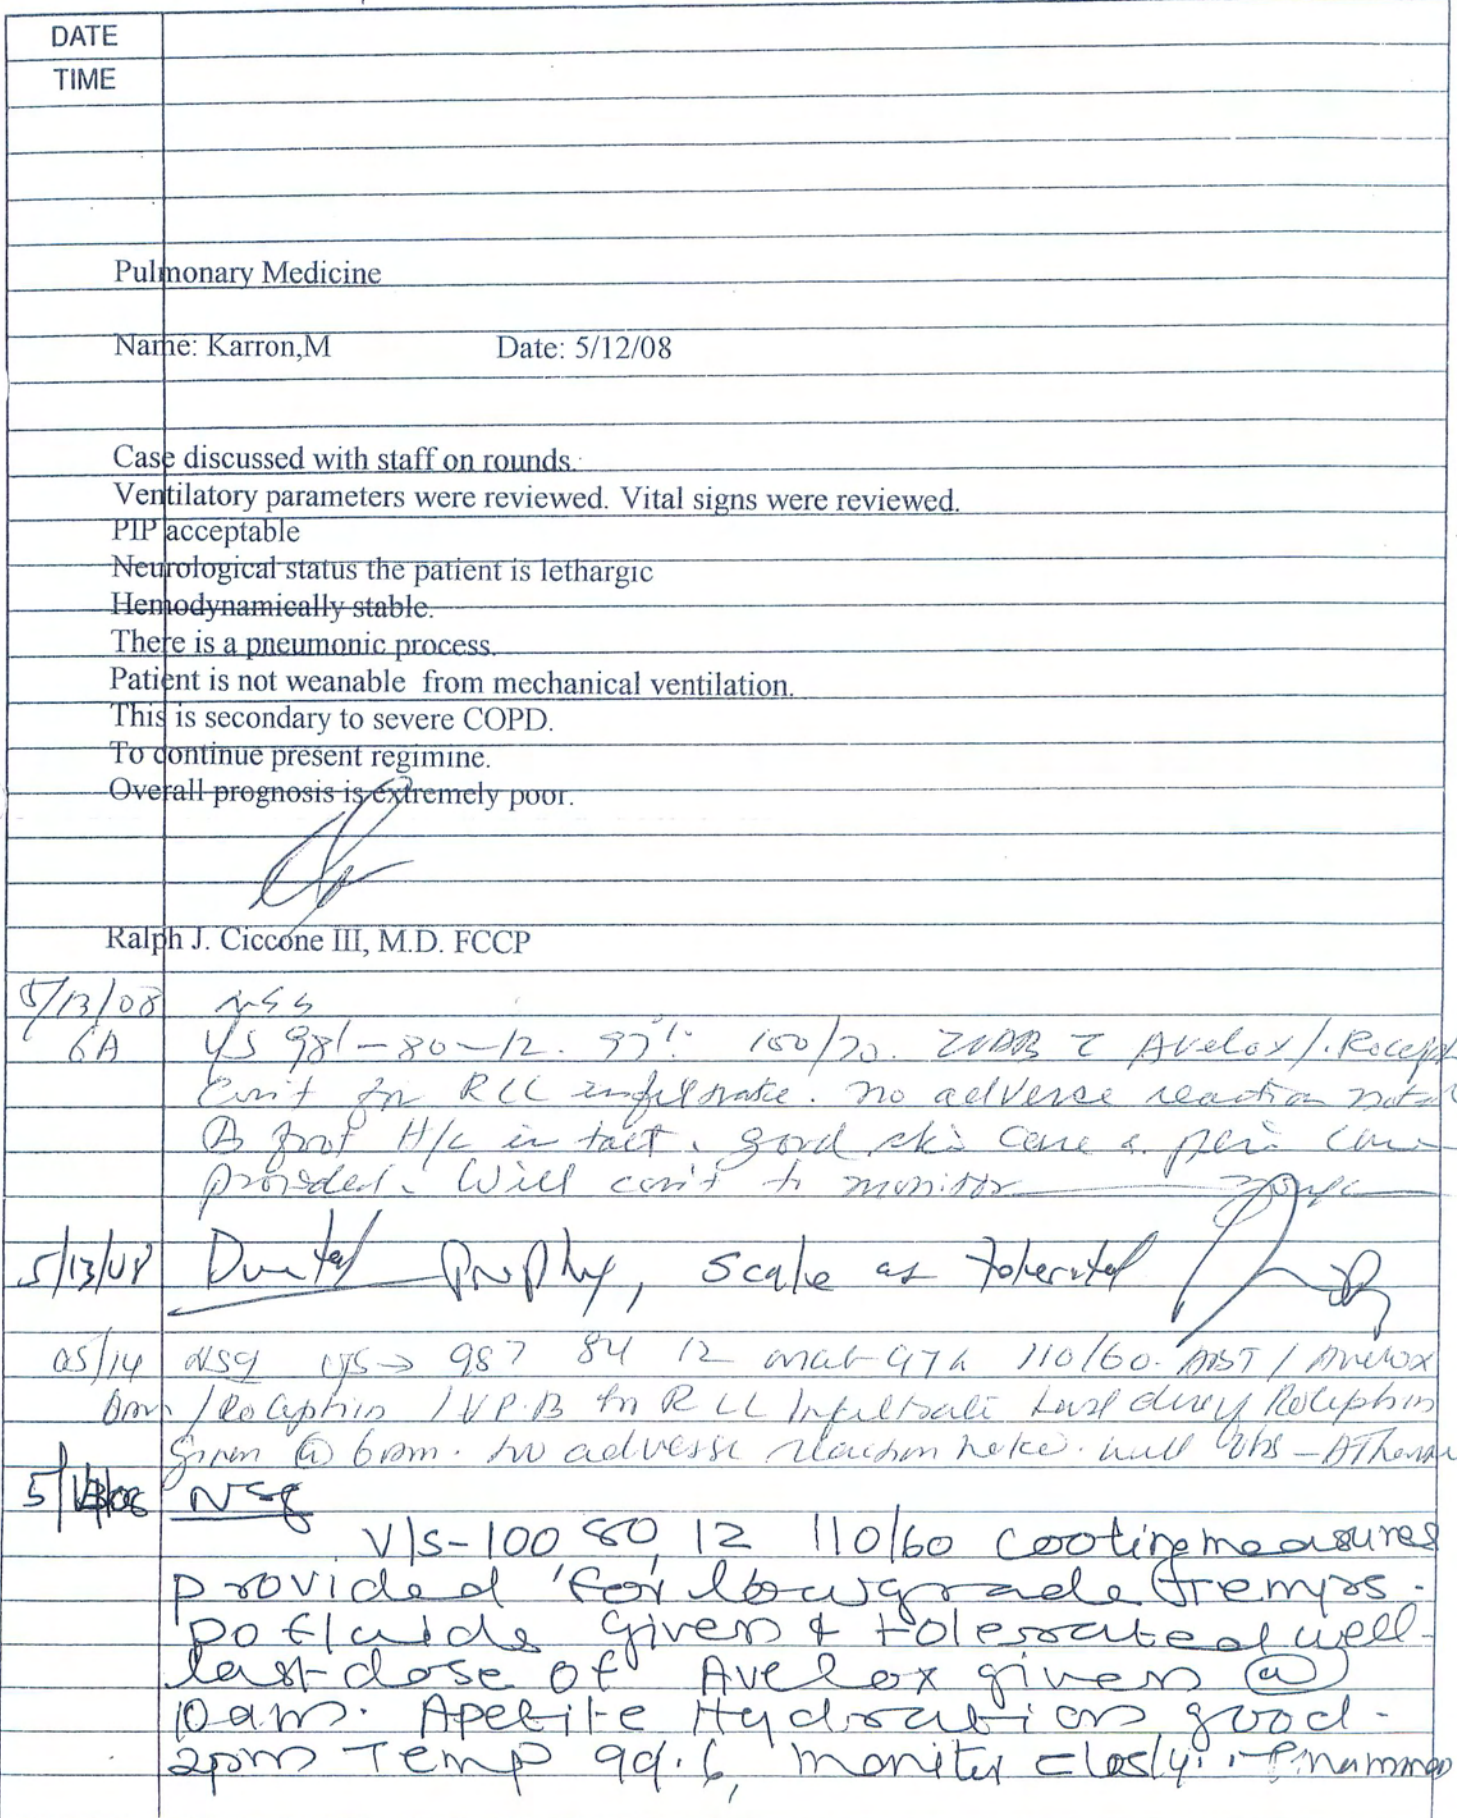 DATE
TIME
Pulmonary Medicine
Name: Karron,M Date: 5/12/08
Case discussed with staff on rounds.
Ventilatory parameters were reviewed. Vital signs were reviewed.
PIP acceptable
Neurological status the patient is lethargic
Hemodynamically stable.
There is a pneumonic process.
Patient is not weanable from mechanical ventilation.
This is secondary to severe COPD.
To continue present regimine.
Overall prognosis is extremely poor.
Ralph J. Ciccone III, M.D. FCCP
5/13/08
6A V/S 98 - 80 - 12. 97% 100/70. Avelox/.Roceph
con't for RLL infiltrate. no adverse reaction
foot H/L in tact. good skin care & peri care
provided. Will con't to monitor
5/13/08 Dental prophy, scale as tolerated
05/14 NSg V/S → 987 84 12 97% 110/60. Avelox
/Rocephin IVPB for RLL Infiltrate Last dose of Rocephin
given @ 6am. no adverse reaction
NSg
V/S-100 80, 12 110/60 cooling measures
provided for lowgrade temps.
po fluids given & tolerated well.
last dose of Avelox given @
10am. Apetite Hydration good.
2pm Temp 99.6, moniter closly.